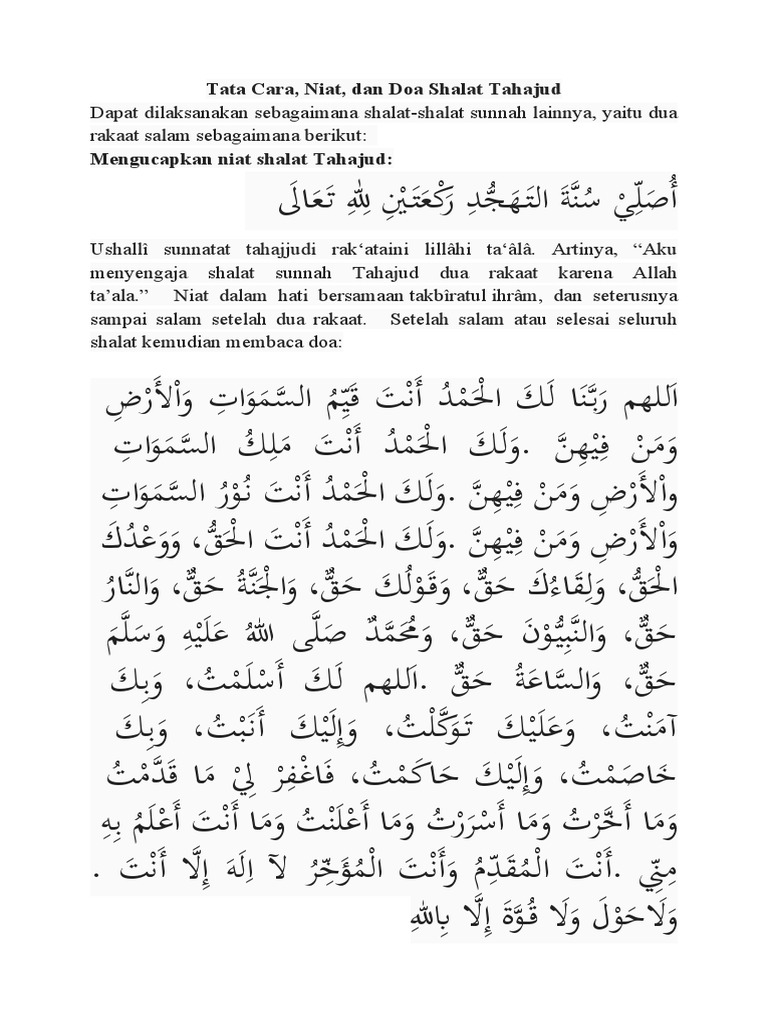 Tata Cara, Niat, dan Doa Shalat Tahajud
Dapat dilaksanakan sebagaimana shalat-shalat sunnah lainnya, yaitu dua
rakaat salam sebagaimana berikut:
Mengucapkan niat shalat Tahajud:
أُصَلِّيْ سُنَّةَ التَهَجُّدِ رَكْعَتَيْنِ لِلهِ تَعَالَى
Ushallî sunnatat tahajjudi rak‘ataini lillâhi ta‘âlâ. Artinya, “Aku
menyengaja shalat sunnah Tahajud dua rakaat karena Allah
ta’ala.” Niat dalam hati bersamaan takbîratul ihrâm, dan seterusnya
sampai salam setelah dua rakaat. Setelah salam atau selesai seluruh
shalat kemudian membaca doa:
اَللهم رَبَّنَا لَكَ الْحَمْدُ أَنْتَ قَيِّمُ السَّمَوَاتِ وَاْلأَرْضِ
وَمَنْ فِيْهِنَّ .وَلَكَ الْحَمْدُ أَنْتَ مَلِكُ السَّمَوَاتِ
واْلأَرْضِ وَمَنْ فِيْهِنَّ .وَلَكَ الْحَمْدُ أَنْتَ نُوْرُ السَّمَوَاتِ
وَاْلأَرْضِ وَمَنْ فِيْهِنَّ .وَلَكَ الْحَمْدُ أَنْتَ الْحَقُّ، وَوَعْدُكَ
الْحَقُّ، وَلِقَاءُكَ حَقٌّ، وَقَوْلُكَ حَقٌّ، وَالْجَنَّةُ حَقٌّ، وَالنَّارُ
حَقٌّ، وَالنَّبِيُّوْنَ حَقٌّ، وَمُحَمَّدٌ صَلَّى اللهُ عَلَيْهِ وَسَلَّمَ
حَقٌّ، وَالسَّاعَةُ حَقٌّ .اَللهم لَكَ أَسْلَمْتُ، وَبِكَ
آمَنْتُ، وَعَلَيْكَ تَوَكَّلْتُ، وَإِلَيْكَ أَنَبْتُ، وَبِكَ
خَاصَمْتُ، وَإِلَيْكَ حَاكَمْتُ، فَاغْفِرْ لِيْ مَا قَدَّمْتُ
وَمَا أَخَّرْتُ وَمَا أَسْرَرْتُ وَمَا أَعْلَنْتُ وَمَا أَنْتَ أَعْلَمُ بِهِ
مِنِّي .أَنْتَ الْمُقَدِّمُ وَأَنْتَ الْمُؤَخِّرُ لآ اِلَهَ إِلَّا أَنْتَ .
وَلَاحَوْلَ وَلَا قُوَّةَ إِلَّا بِاللهِ